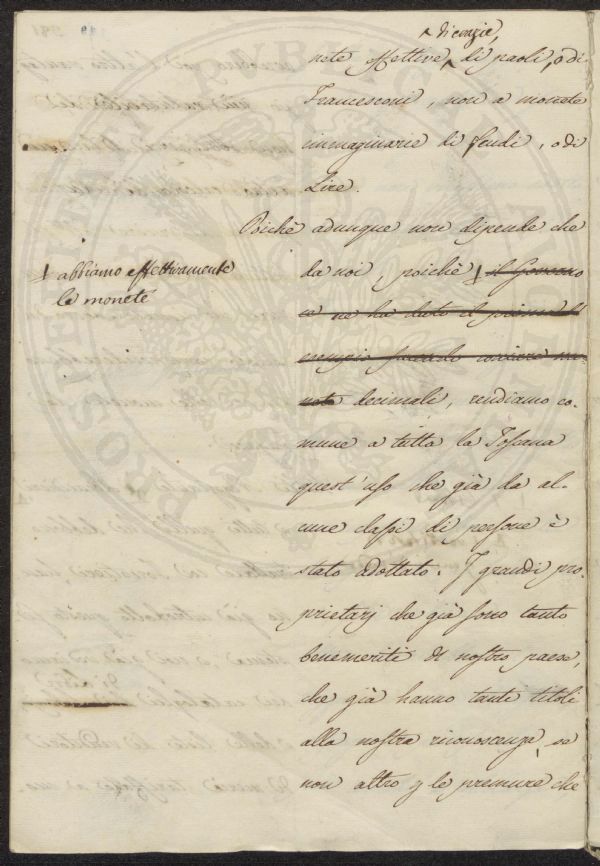 di crazie,
nete effettive, di paoli, o di
Francesconi, non a monete
immaginarie di scudi, o di
Lire.
Poichè adunque non dipende che
da noi, poichè ‡ il Governo
ce ne ha dato il primo l'
esempio facendo coniare mo-
nete decimali, rendiamo co-
mune a tutta la Toscana
quest'uso che già da al-
cune classi di persone è
stato adottato. I grandi pro-
prietarj che già sono tanto
benemeriti di nostro paese,
che già hanno tanti titoli
alla nostra riconoscenza, se
non altro p le premure che
‡ abbiamo effettivamente
le monete
PROSPERITATI PUBLICAE AUGENDAE